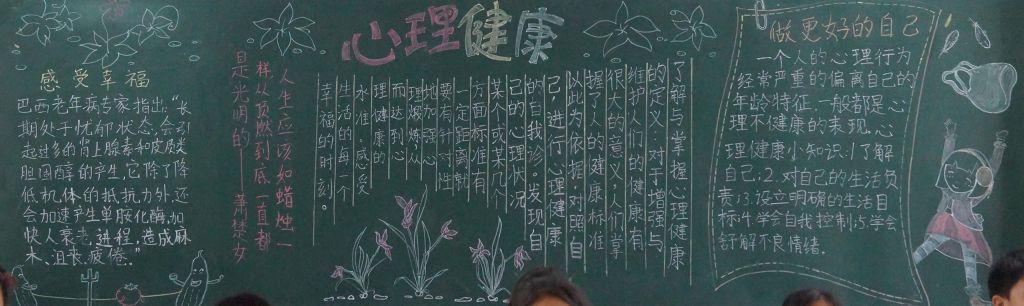 心理健康
感受幸福
巴西老年病专家指出:“长
期处于忧郁状态,会引
起过多的肾上腺素和皮质类
胆固醇的产生,它除了降
低机体的抵抗力外,还
会加速产生单胺化酶,加
快人衰老进程,造成麻
木、沮丧、疲倦.”
人生应该如蜡烛一
样从顶燃到底,一直都
是光明的——萧楚女
了解与掌握心理健康
的定义:对于增强与
维护人们的健康有
很大的意义,人们掌
握了人的健康标准
以此为依据,对照自
己,进行心理健康
的自我诊。发现自
己的心理状况
某个或某几个
方面标准有
一定距离,就
要有针对性
地加强心
理锻炼从
而达到心
理健康的
水准,感受
生活的每一个
幸福的时刻。
做更好的自己
一个人的心理行为
经常严重的偏离自己的
年龄特征,一般都是心
理不健康的表现,心
理健康小知识:1.了解
自己;2.对自己的生活负
责;3.设立明确的生活目
标;4.学会自我控制;5.学会
纾解不良情绪.